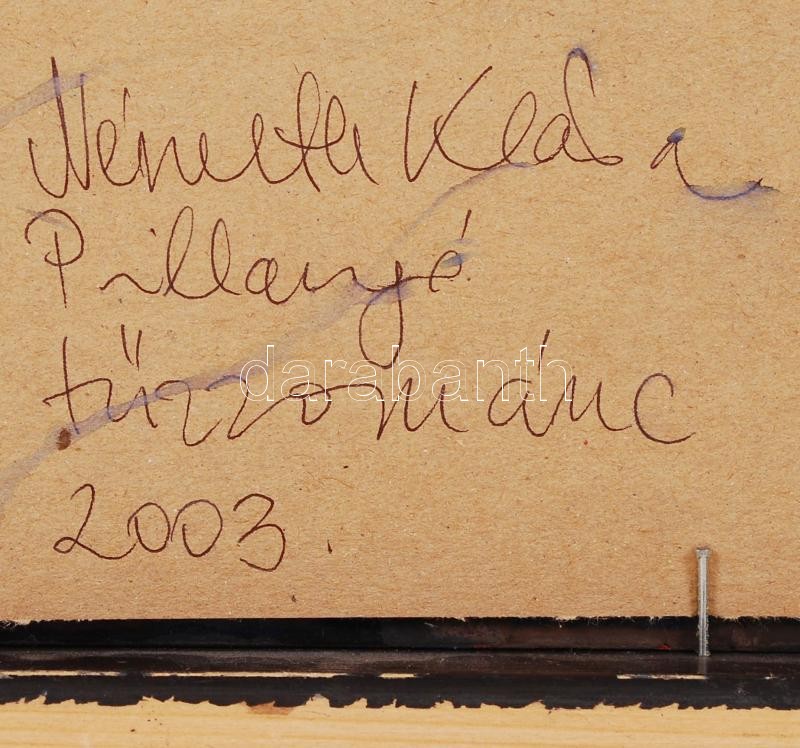 Németh Klára
Pillangó
tűzzománc
darabanth
2003.